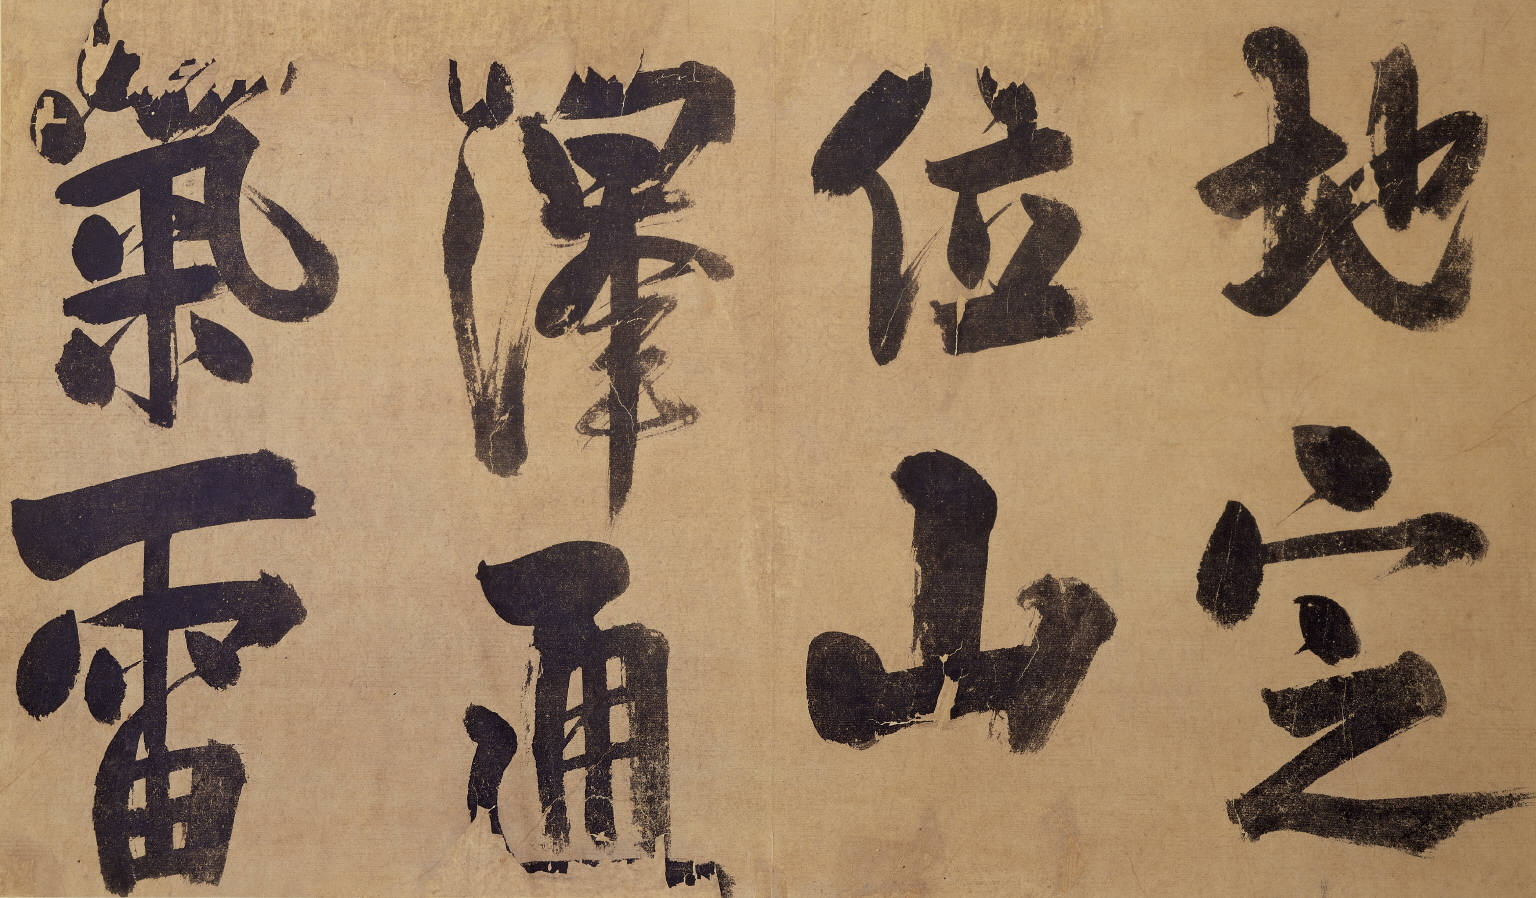 地定
位山
澤通
氣雷